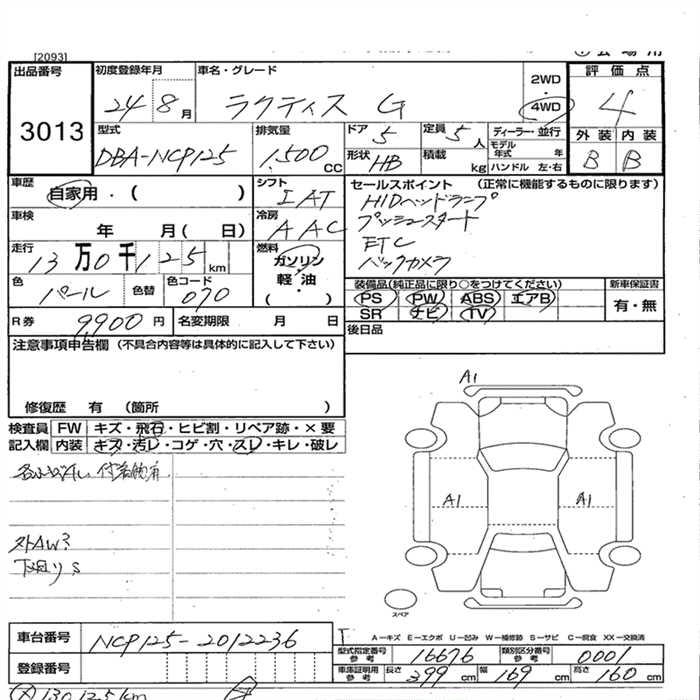 [2093]
出品番号
3013
初度登録年月
24 8月
車名・グレード
ラクティス G
2WD
4WD
評価点
4
型式
DBA-NCP125
排気量
1,500 CC
ドア 5
定員 5人
形状 HB
積載 kg
ディーラー・並行
モデル年式 年
ハンドル 左・右
外装 内装
B B
車歴
自家用・( )
シフト
IAT
セールスポイント (正常に機能するものに限ります)
HIDヘッドランプ
プッシュスタート
ETC
バックカメラ
車検
年 月( 日)
冷房
AAC
走行
13万0千125km
燃料
ガソリン
軽・油
・( )
色
パール
色替
色コード
070
装備品(純正品に限り○をつけてください)
PS PW ABS エアB
SR ナビ TV
新車保証書
有・無
R券 9,900円
名変期限 月 日
後日品
注意事項申告欄 (不具合内容等は具体的に記入して下さい)
修復歴 有 (箇所 )
検査員 FW キズ・飛石・ヒビ割・リペア跡・×要
記入欄 内装 キズ・汚レ・コゲ・穴・スレ・キレ・破レ
A1
A1 A1
下廻りS
スペア
A-キズ E-エクボ U-凹み W-補修跡 S-サビ C-腐食 XX-交換済
車台番号 NCP125-2012236
登録番号
型式指定番号 参考 16676
類別区分番号 参考 0001
車庫証明用 参考 長さ 399cm 幅 169cm 高さ 160cm
130,125km